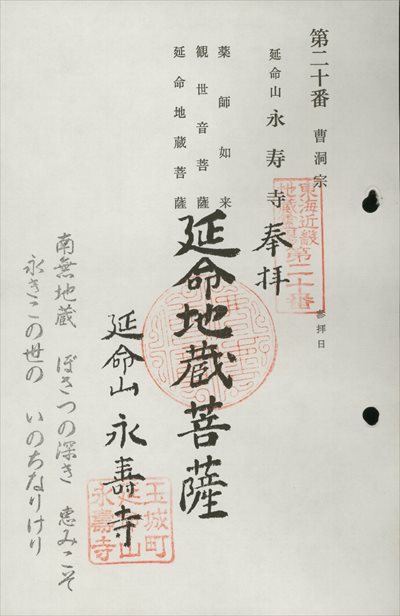 第二十番 曹洞宗
参拝日
東海近畿
地蔵霊場
第二十番
延命山 永寿寺
奉拝
薬師如来
観世音菩薩
延命地蔵菩薩
延命地蔵菩薩
延命山 永壽寺
玉城町
延命山
永壽寺
南無地蔵 ぼさつの深き 恵みこそ
永きこの世の いのちなりけり